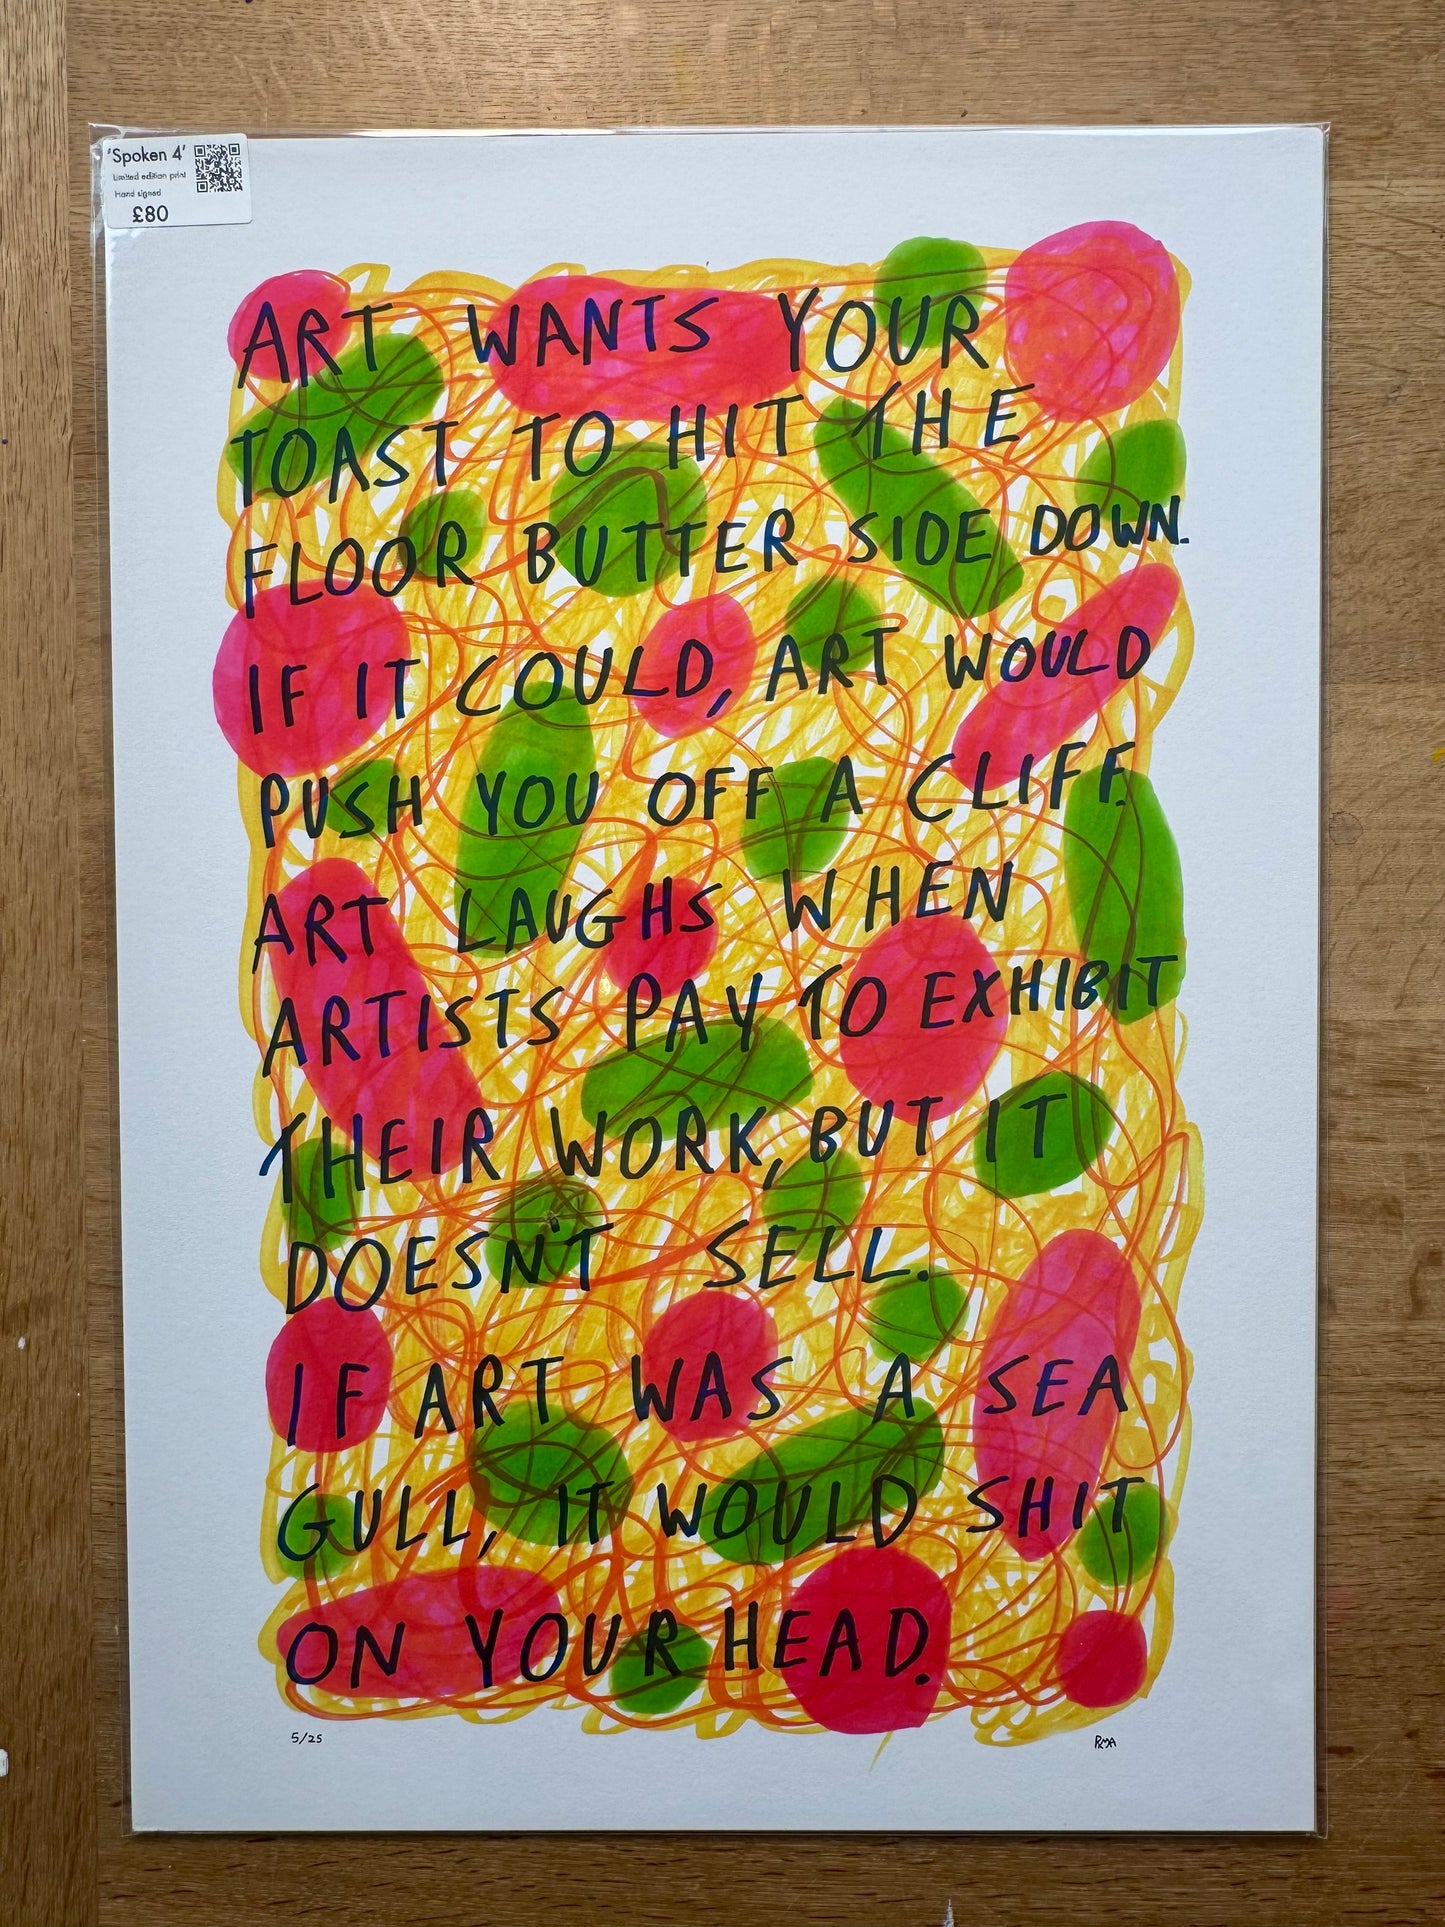 'Spoken 4'
Limited edition print
Hand signed
£80
ART WANTS YOUR
TOAST TO HIT THE
FLOOR BUTTER SIDE DOWN.
IF IT COULD, ART WOULD
PUSH YOU OFF A CLIFF.
ART LAUGHS WHEN
ARTISTS PAY TO EXHIBIT
THEIR WORK, BUT IT
DOESN'T SELL.
IF ART WAS A SEA
GULL, IT WOULD SHIT
ON YOUR HEAD.
5/25